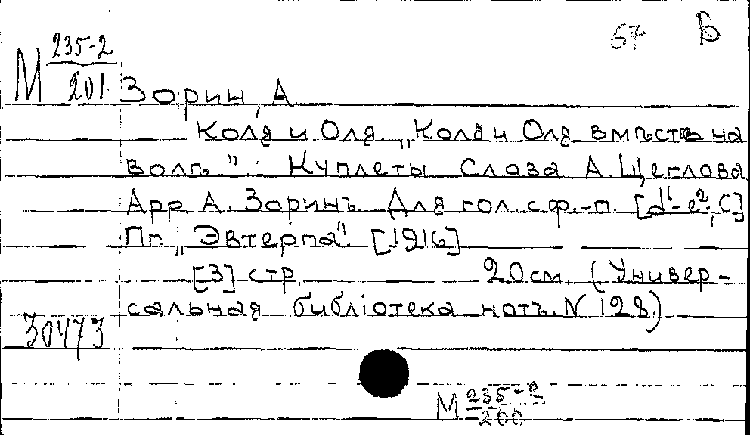 М 235-2
201
57 Б
Зорин, А
Коля и Оля. "Коля и Оля вмѣстѣ на
волг." Куплеты Слова А. Щеглова
Арр А. Зоринъ Для гол. с ф.-п. [d¹-e²; C]
Пг. "Эвтерпа" [1916]
[3] стр. 20 см. (Универ-
сальная библіотека нотъ. N 128.)
30473
М 235-2
200